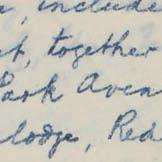 , include
t, together
Park Aven
lodge, Red